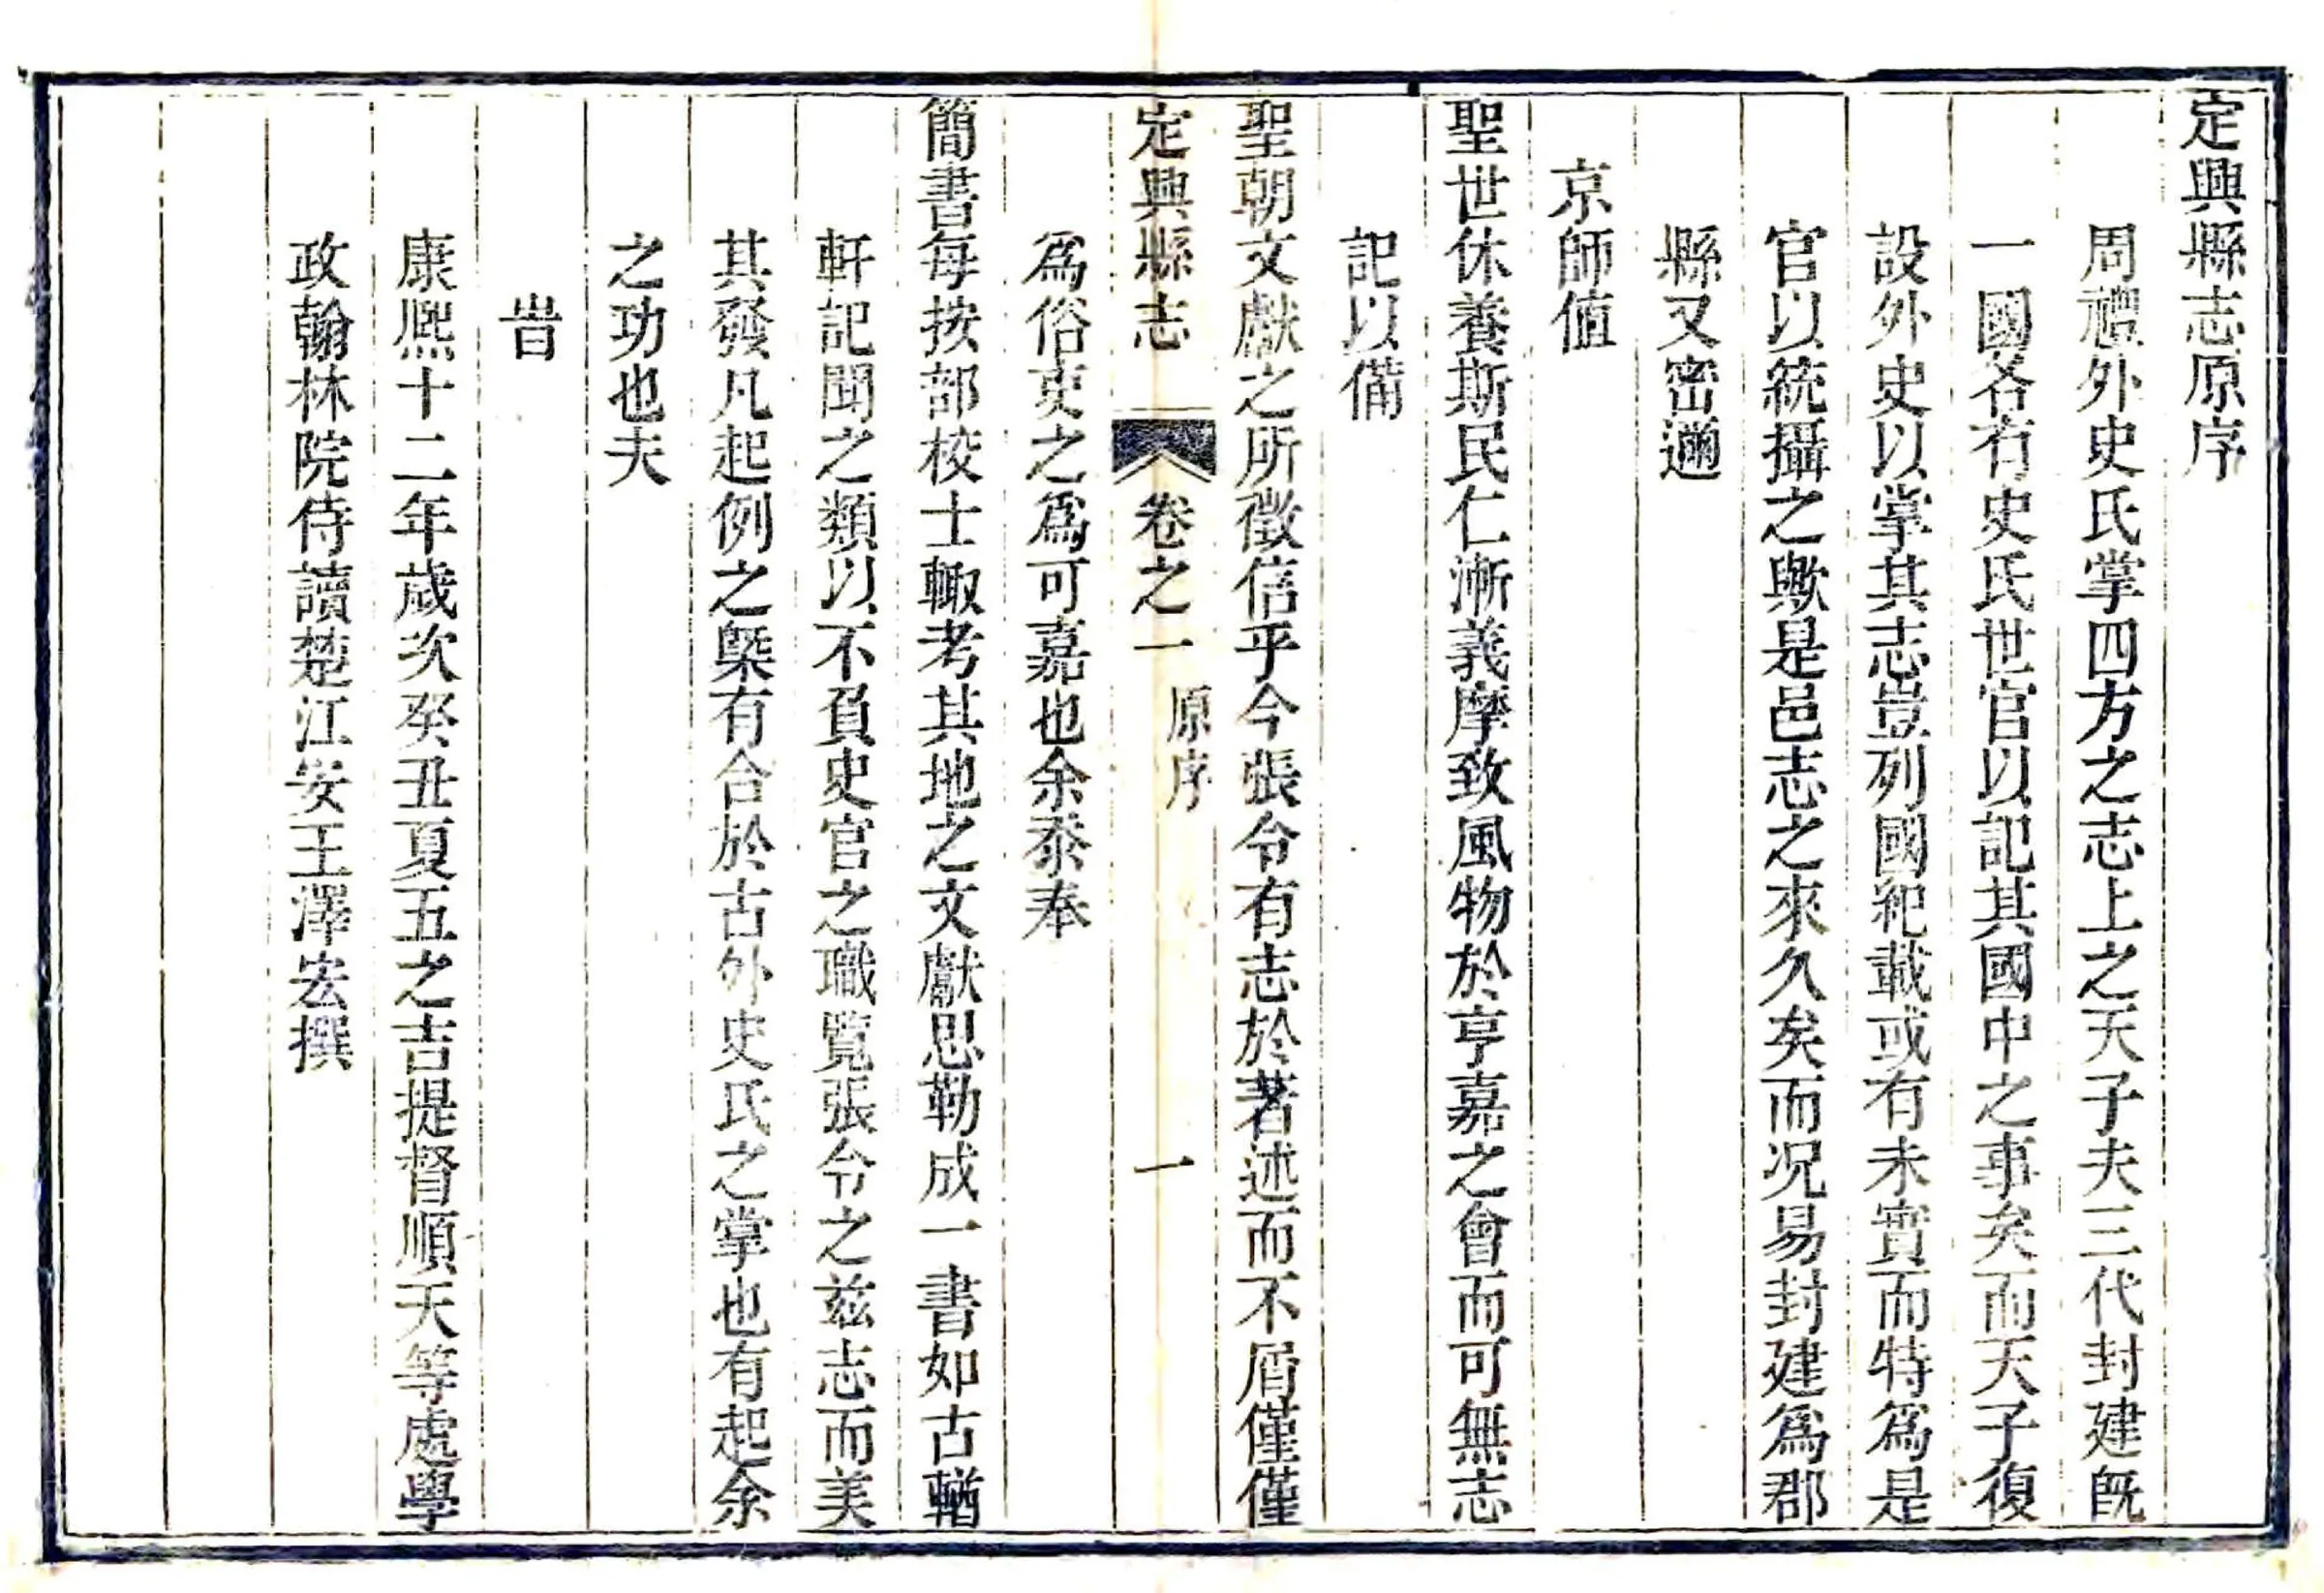 定興縣志原序
周禮外史氏掌四方之志上之天子夫三代封建旣
一國各有史氏世官以記其國中之事矣而天子復
設外史以掌其志豈列國紀載或有未實而特爲是
官以統攝之歟是邑志之來久矣而况易封建爲郡
縣又密邇
京師值
聖世休養斯民仁漸義摩致風物於亨嘉之會而可無志
記以備
聖朝文獻之所徵信乎今張令有志於著述而不屑僅僅
定興縣志 卷之一 原序 一
爲俗吏之爲可嘉也余忝奉
簡書每按部校士輙考其地之文獻思勒成一書如古輶
軒記聞之類以不負史官之職覽張令之兹志而美
其發凡起例之槩有合於古外史氏之掌也有起余
之功也夫
旹
康熙十二年歲次癸丑夏五之吉提督順天等處學
政翰林院侍讀楚江安王澤宏撰